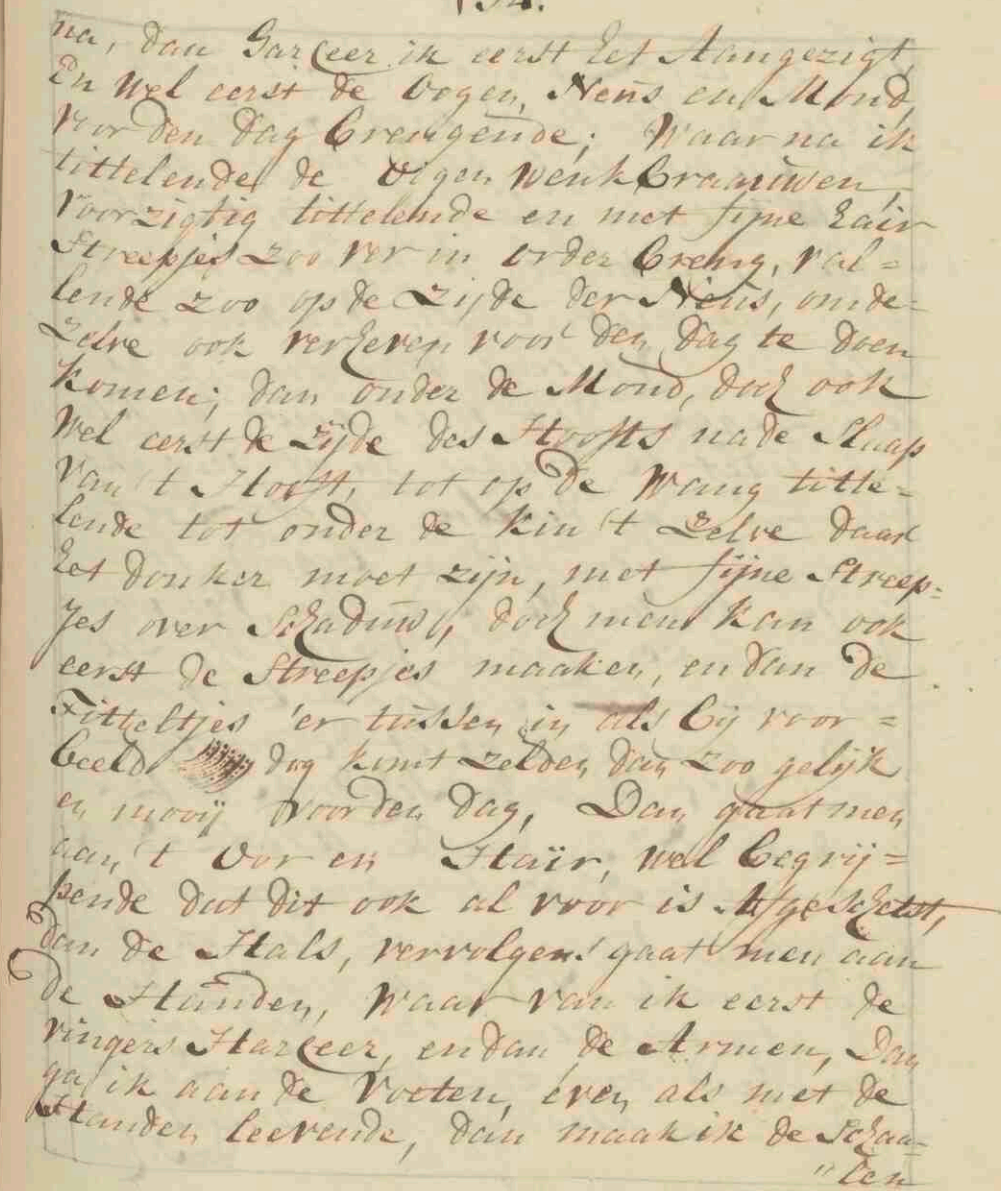 na, dan Harceer ik eerst het Aangezigt,
En wel eerst de Oogen, Neus en Mond,
voor den dag brengende; Waar na ik
tittelende de Oigen wenkbraauwen,
Voorzigtig tittelende en met fijne hair
Streepjes zoo ver in order breng, val=
lende zoo op de Zijde der Neus, om de=
zelve ook verheven voor den dag te doen
komen; dan onder de Mond, doch ook
Wel eerst de zijde des Hoofts na de Slaap
van 't Hooft, tot op de Wang titte=
lende tot onder de kin 't Zelve daar
het donker moet zijn, met fijne Streep=
jes over Schaduw, doch men kan ook
eerst de Streepjes maaken, en dan de
Titteltjes 'er tussen in als bij voor=
beeld dog komt zelden dan zoo gelijk
en mooij voor den dag, Dan gaat men
aan 't Oor en Hair, wel begrij=
pende dat dit ook al voor is Afgeschetst,
dan de Hals, vervolgens gaat men aan
de Handen, Waar van ik eerst de
vingers Harceer, en dan de Armen, Dan
ga ik aan de Voeten, even als met de
Handen leevende, dan maak ik de Schaa=
"len